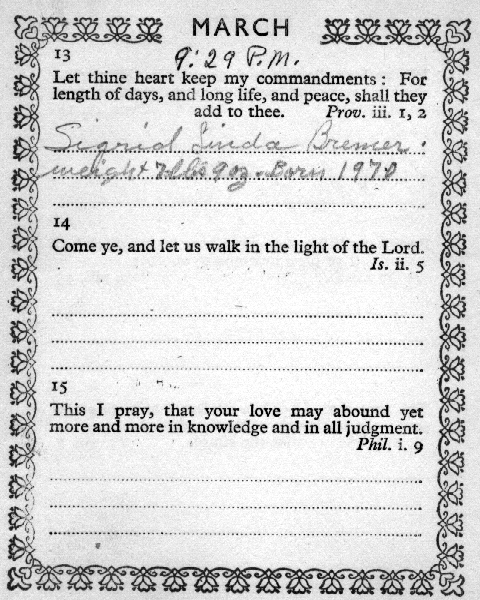 MARCH
13
9:29 P.M.
Let thine heart keep my commandments: For
length of days, and long life, and peace, shall they
add to thee. Prov. iii. 1, 2
Sigrid Linda Bremer.
weight 7 lbs 9 oz. Born 1970
14
Come ye, and let us walk in the light of the Lord.
Is. ii. 5
15
This I pray, that your love may abound yet
more and more in knowledge and in all judgment.
Phil. i. 9